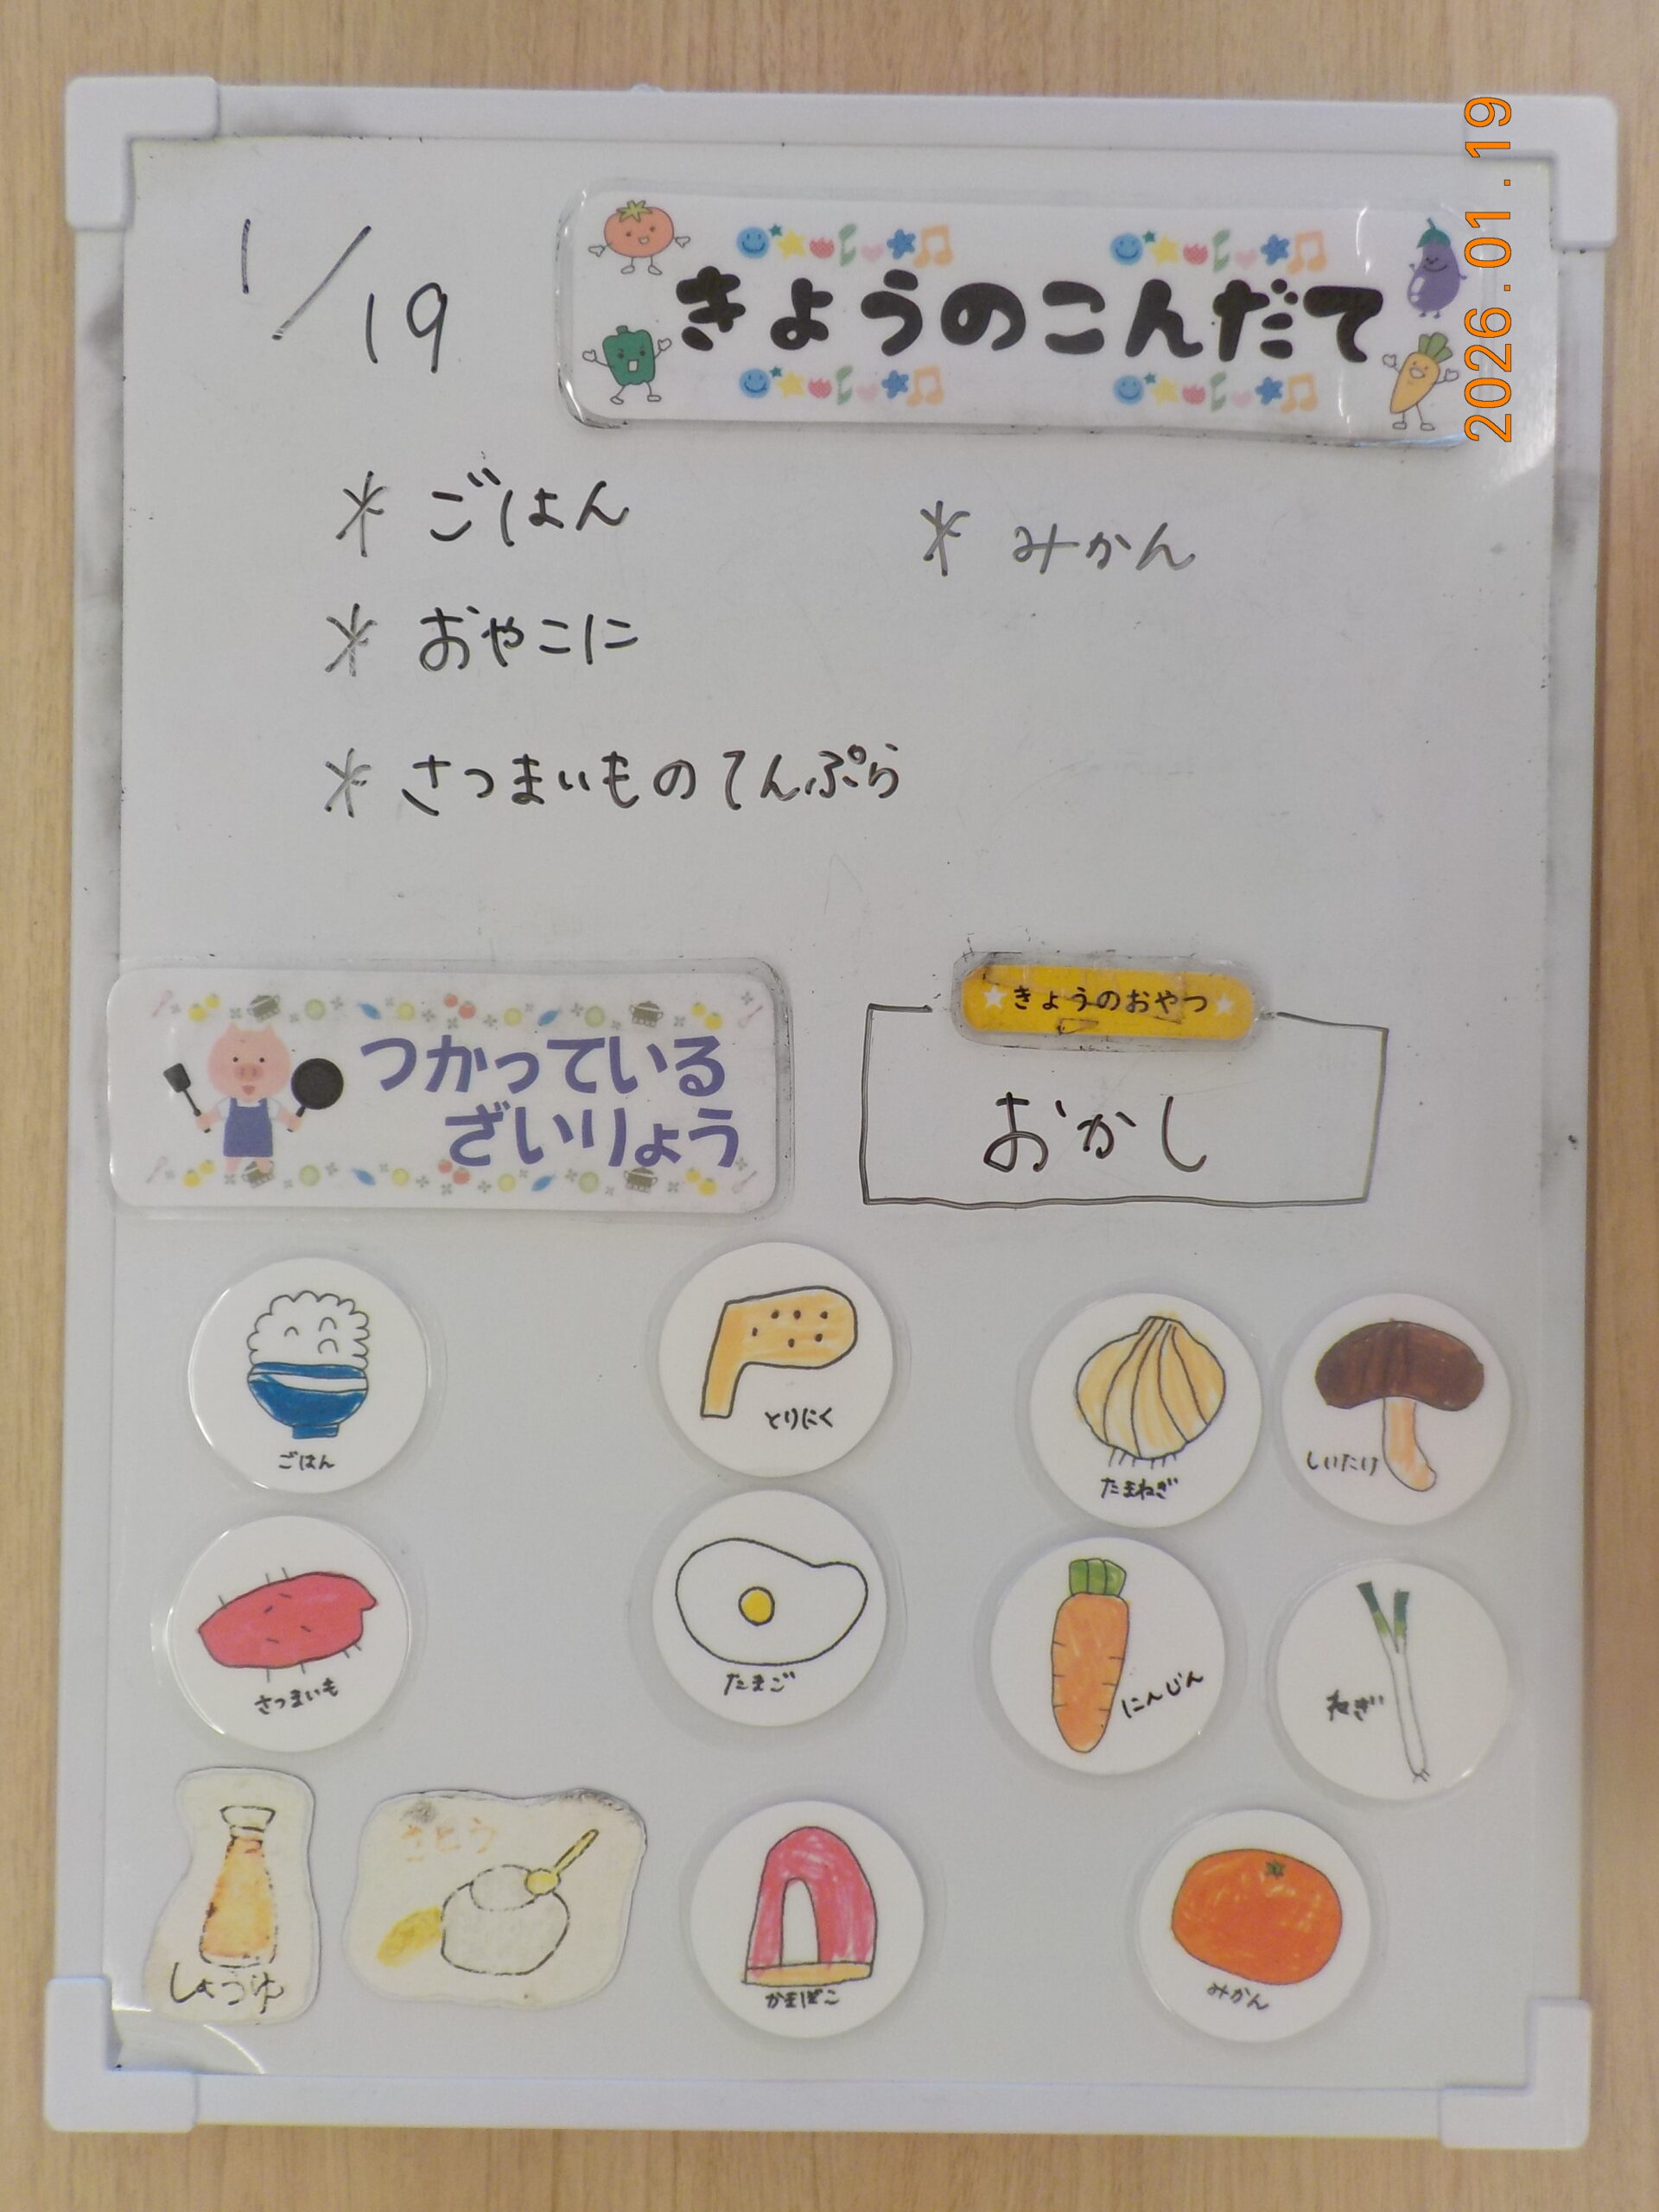 1/19
きょうのこんだて
2026.01.19
* ごはん
* みかん
* おやこに
* さつまいものてんぷら
つかっている
ざいりょう
きょうのおやつ
おかし
ごはん
とりにく
たまねぎ
しいたけ
さつまいも
たまご
にんじん
ねぎ
しょうゆ
さとう
かまぼこ
みかん